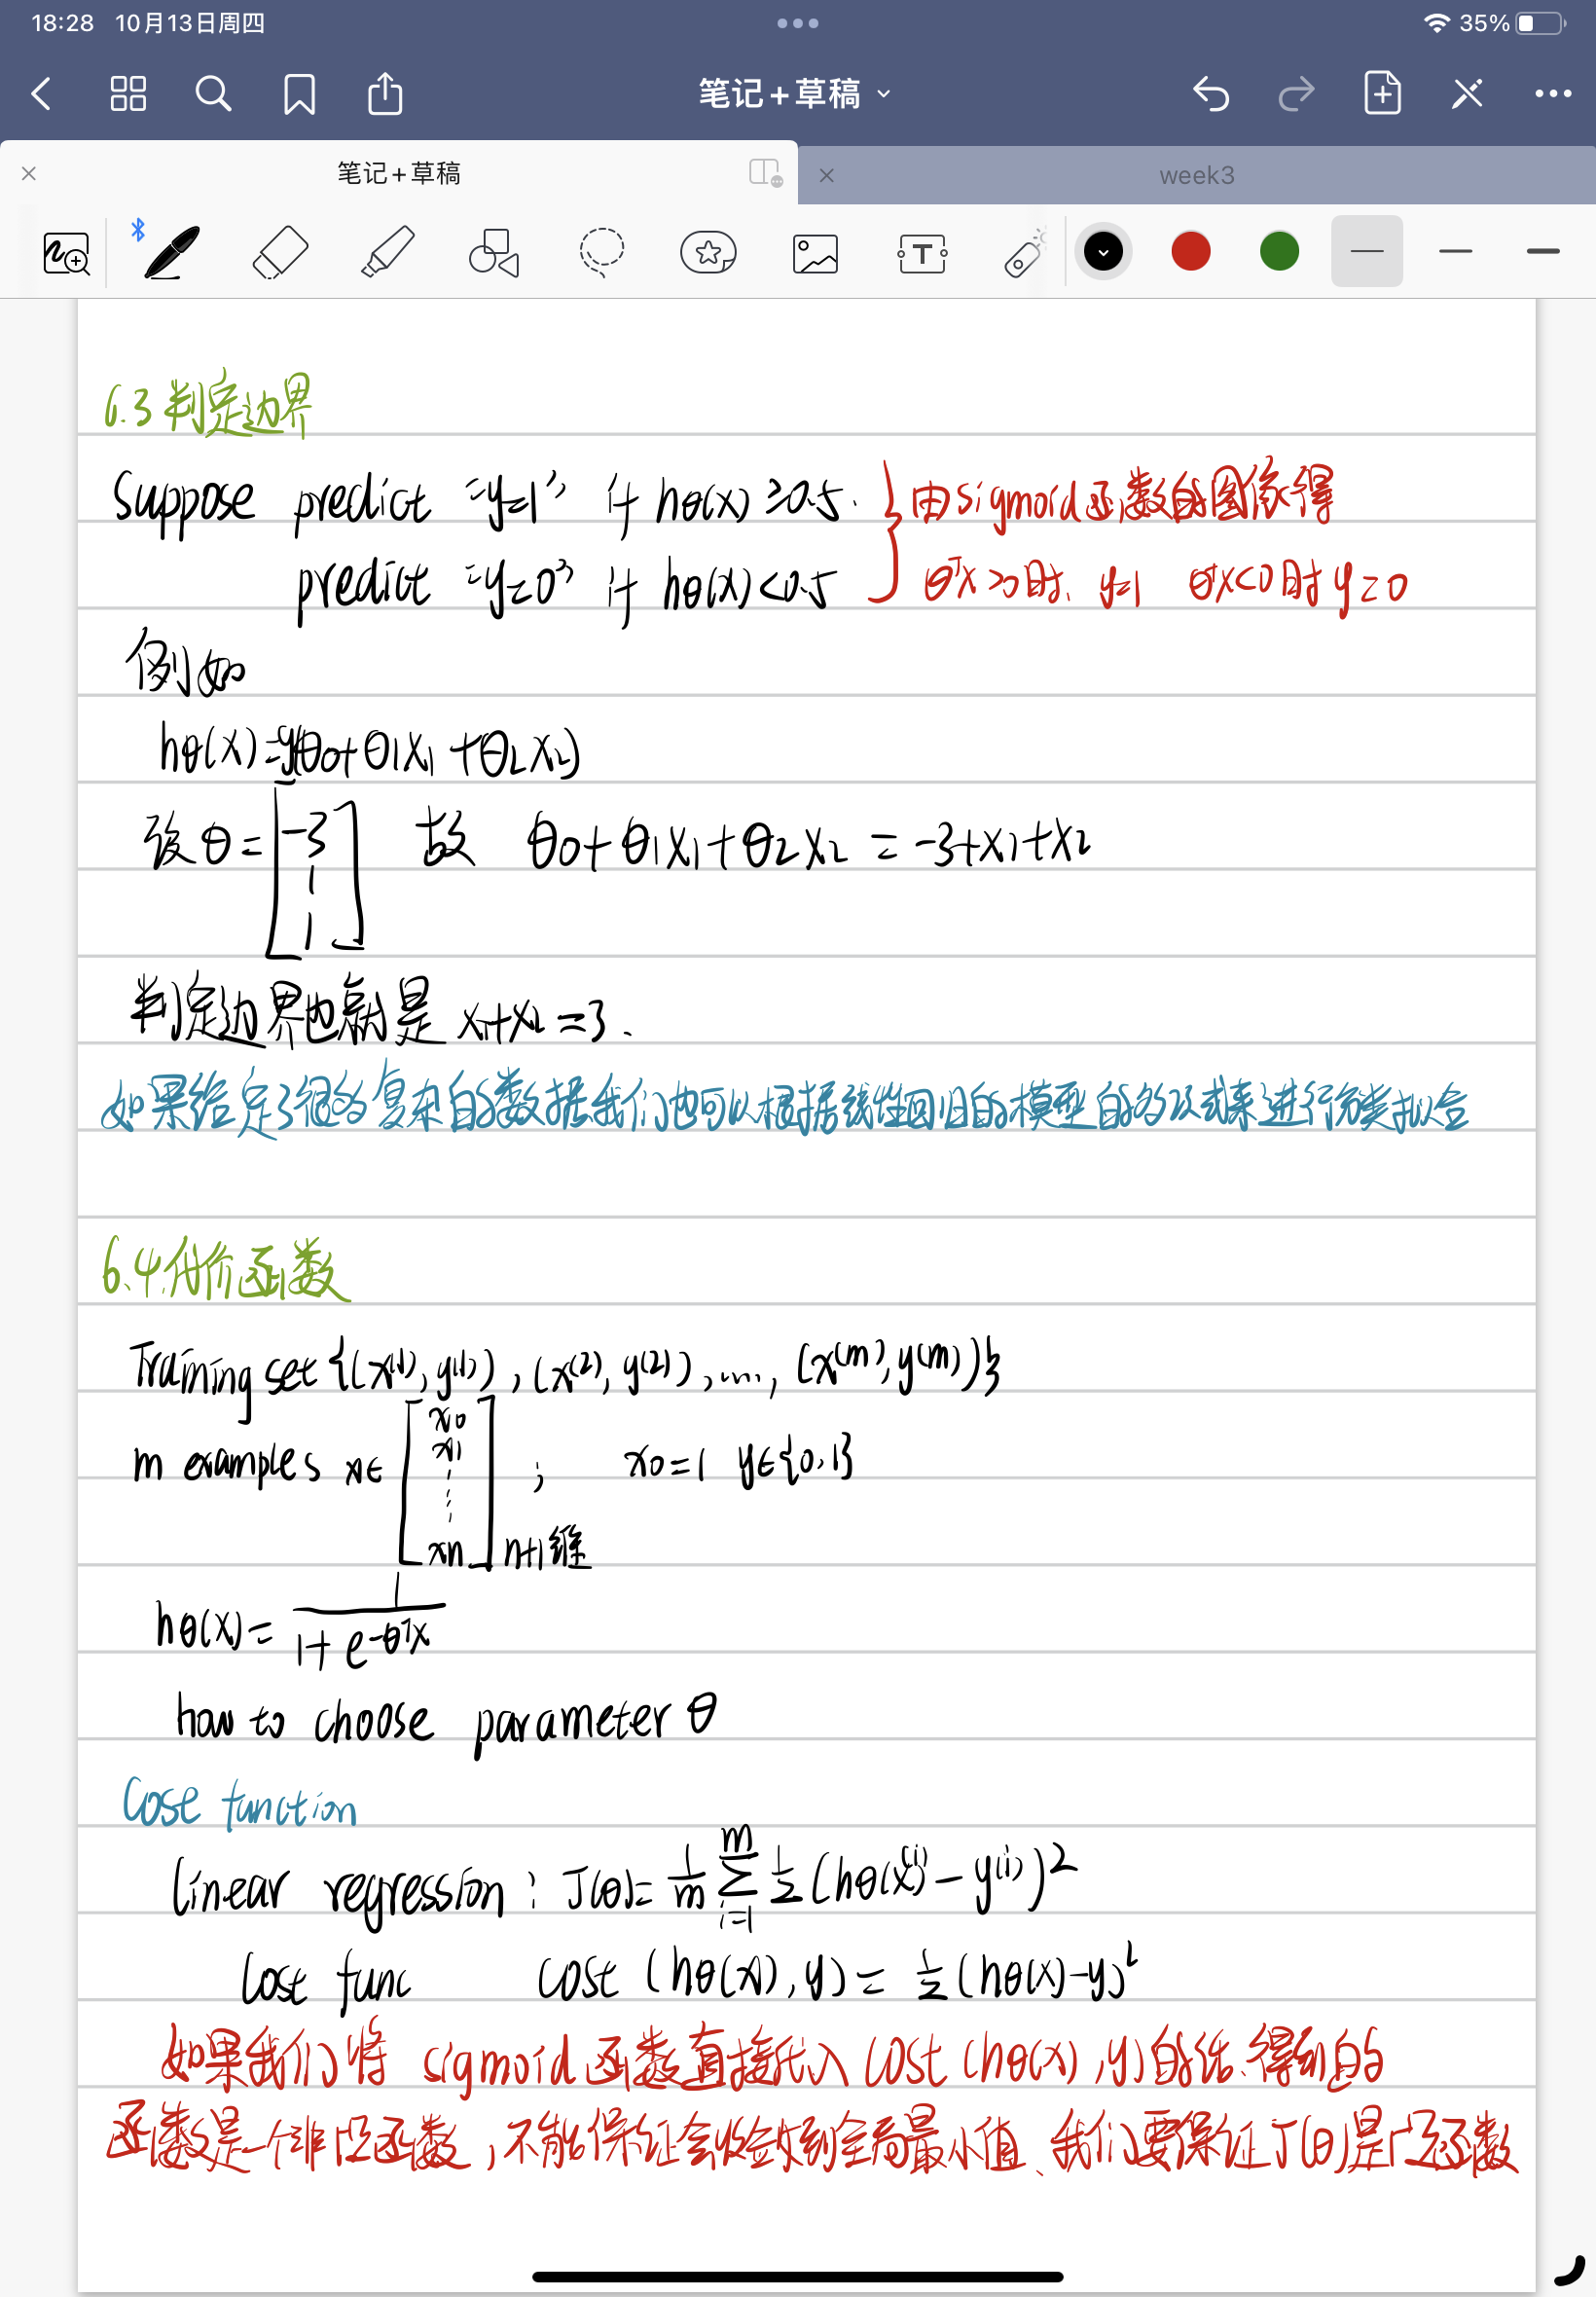 18:28 10月13日周四
35%
笔记+草稿
笔记+草稿
week3
6.3 判定边界
Suppose predict "y=1" if hθ(x) ≥0.5. 由sigmoid函数的图像得
predict "y=0" if hθ(x)<0.5 θᵀx>0时, y=1 θᵀx<0时 y=0
例如
hθ(x)=g(θ0+θ1x1+θ2x2)
设θ=[-3 1 1] 故 θ0+θ1x1+θ2x2 = -3+x1+x2
判定边界也就是 x1+x2=3.
如果给定了很多复杂的数据我们也可以根据线性回归的模型的多项式来进行分类拟合
6.4.代价函数
Training set {(x⁽¹⁾, y⁽¹⁾), (x⁽²⁾, y⁽²⁾), ..., (x⁽ᵐ⁾, y⁽ᵐ⁾)}
m examples x∈[x0 x1 ⋮ xn] n+1维 ; x0=1 y∈{0,1}
hθ(x)= 1/(1+e^(-θᵀx))
how to choose parameter θ
Cose function
Linear regression : J(θ)= 1/m Σ(i=1→m) 1/2 (hθ(x⁽ⁱ⁾) - y⁽ⁱ⁾)²
Cost func cost (hθ(x), y) = 1/2 (hθ(x)-y)²
如果我们将 sigmoid 函数直接代入 cost (hθ(x), y)的话、得到的
函数是一个非凸函数,不能保证会收敛到全局最小值、我们要保证J(θ)是凸函数